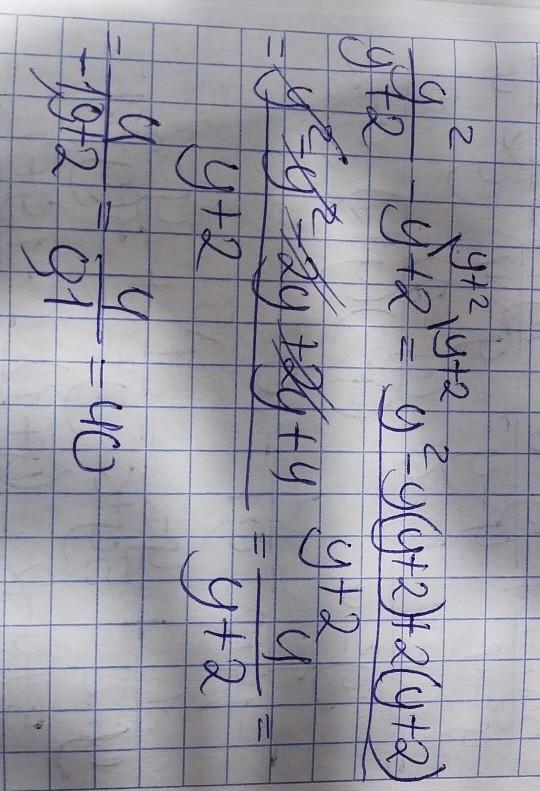 y²/(y+2) - y\y+2 + 2\y+2 = (y² - y(y+2) + 2(y+2))/(y+2)
= (y² - y² - 2y + 2y + 4)/(y+2) = 4/(y+2) =
= 4/(-1,9+2) = 4/0,1 = 40